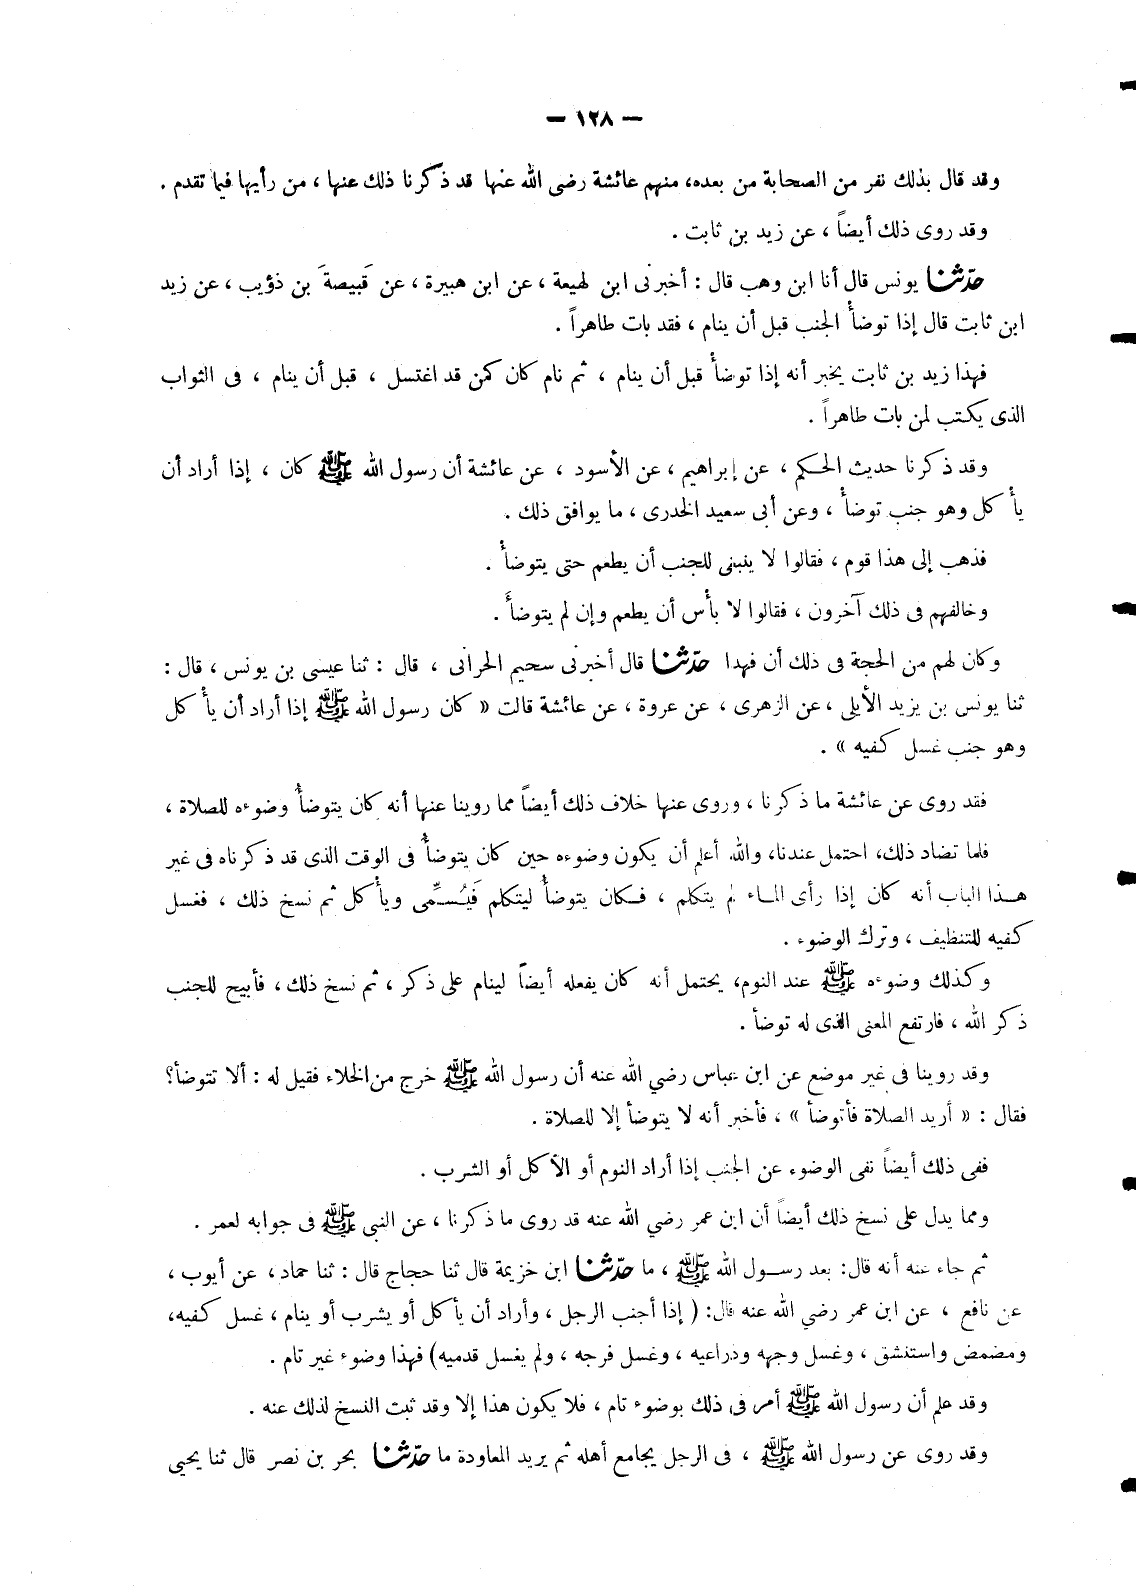 — ١٢٨ —
وقد قال بذلك نفر من الصحابة من بعده، منهم عائشة رضى الله عنها قد ذكرنا ذلك عنها ، من رأيها فيما تقدم .
وقد روى ذلك أيضاً ، عن زيد بن ثابت .
حدّثنا يونس قال أنا ابن وهب قال : أخبرنى ابن لهيعة ، عن ابن هبيرة ، عن قَبيصةَ بن ذؤيب ، عن زيد
ابن ثابت قال إذا توضأ الجنب قبل أن ينام ، فقد بات طاهراً .
فهذا زيد بن ثابت يخبر أنه إذا توضأ قبل أن ينام ، ثم نام كان كمن قد اغتسل ، قبل أن ينام ، فى الثواب
الذى يكتب لمن بات طاهراً .
وقد ذكرنا حديث الحكم ، عن إبراهيم ، عن الأسود ، عن عائشة أن رسول الله ﷺ كان ، إذا أراد أن
يأكل وهو جنب توضأ ، وعن أبى سعيد الخدرى ، ما يوافق ذلك .
فذهب إلى هذا قوم ، فقالوا لا ينبغى للجنب أن يطعم حتى يتوضأ .
وخالفهم فى ذلك آخرون ، فقالوا لا بأس أن يطعم وإن لم يتوضأ .
وكان لهم من الحجة فى ذلك أن فهدا حدّثنا قال أخبرنى سحيم الحرانى ، قال : ثنا عيسى بن يونس ، قال :
ثنا يونس بن يزيد الأيلى ، عن الزهرى ، عن عروة ، عن عائشة قالت « كان رسول الله ﷺ إذا أراد أن يأكل
وهو جنب غسل كفيه » .
فقد روى عن عائشة ما ذكرنا ، وروى عنها خلاف ذلك أيضاً مما روينا عنها أنه كان يتوضأ وضوءه للصلاة ،
فلما تضاد ذلك، احتمل عندنا، والله أعلم أن يكون وضوءه حين كان يتوضأ فى الوقت الذى قد ذكرناه فى غير
هذا الباب أنه كان إذا رأى الماء لم يتكلم ، فكان يتوضأ ليتكلم فَيُسمِّى ويأكل ثم نسخ ذلك ، فغسل
كفيه للتنظيف ، وترك الوضوء .
وكذلك وضوءه ﷺ عند النوم، يحتمل أنه كان يفعله أيضاً لينام على ذكر ، ثم نسخ ذلك ، فأبيح للجنب
ذكر الله ، فارتفع المعنى الذى له توضأ .
وقد روينا فى غير موضع عن ابن عباس رضي الله عنه أن رسول الله ﷺ خرج من الخلاء فقيل له : ألا تتوضأ؟
فقال : « أريد الصلاة فأتوضأ » ، فأخبر أنه لا يتوضأ إلا للصلاة .
ففى ذلك أيضاً نفى الوضوء عن الجنب إذا أراد النوم أو الأكل أو الشرب .
ومما يدل على نسخ ذلك أيضاً أن ابن عمر رضي الله عنه قد روى ما ذكرنا ، عن النبى ﷺ فى جوابه لعمر .
ثم جاء عنه أنه قال: بعد رسول الله ﷺ ، ما حدّثنا ابن خزيمة قال ثنا حجاج قال : ثنا حماد ، عن أيوب ،
عن نافع ، عن ابن عمر رضي الله عنه قال: ( إذا أجنب الرجل ، وأراد أن يأكل أو يشرب أو ينام ، غسل كفيه،
ومضمض واستنشق ، وغسل وجهه وذراعيه ، وغسل فرجه ، ولم يغسل قدميه) فهذا وضوء غير تام .
وقد علم أن رسول الله ﷺ أمر فى ذلك بوضوء تام ، فلا يكون هذا إلا وقد ثبت النسخ لذلك عنه .
وقد روى عن رسول الله ﷺ ، فى الرجل يجامع أهله ثم يريد المعاودة ما حدّثنا بحر بن نصر قال ثنا يحيى